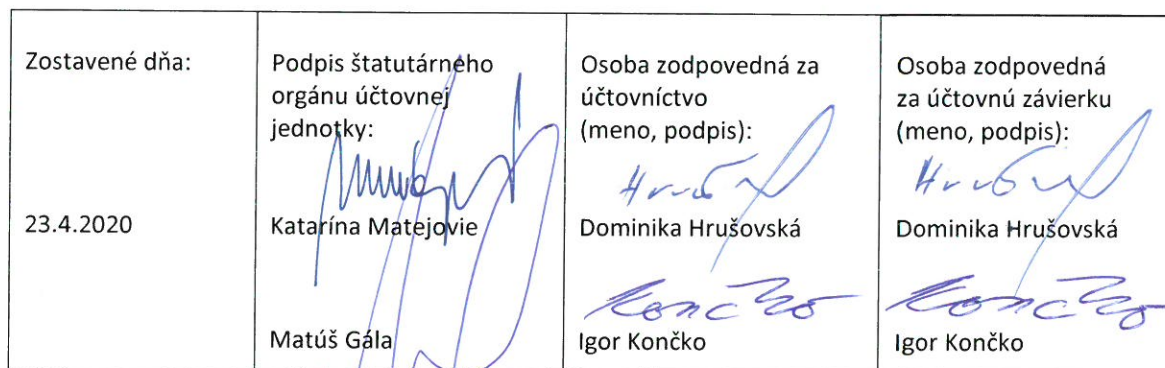 Zostavené dňa:
Podpis štatutárneho
orgánu účtovnej
jednotky:
Osoba zodpovedná za
účtovníctvo
(meno, podpis):
Osoba zodpovedná
za účtovnú závierku
(meno, podpis):
23.4.2020
Katarína Matejovie
Dominika Hrušovská
Dominika Hrušovská
Končko
Končko
Matúš Gála
Igor Končko
Igor Končko